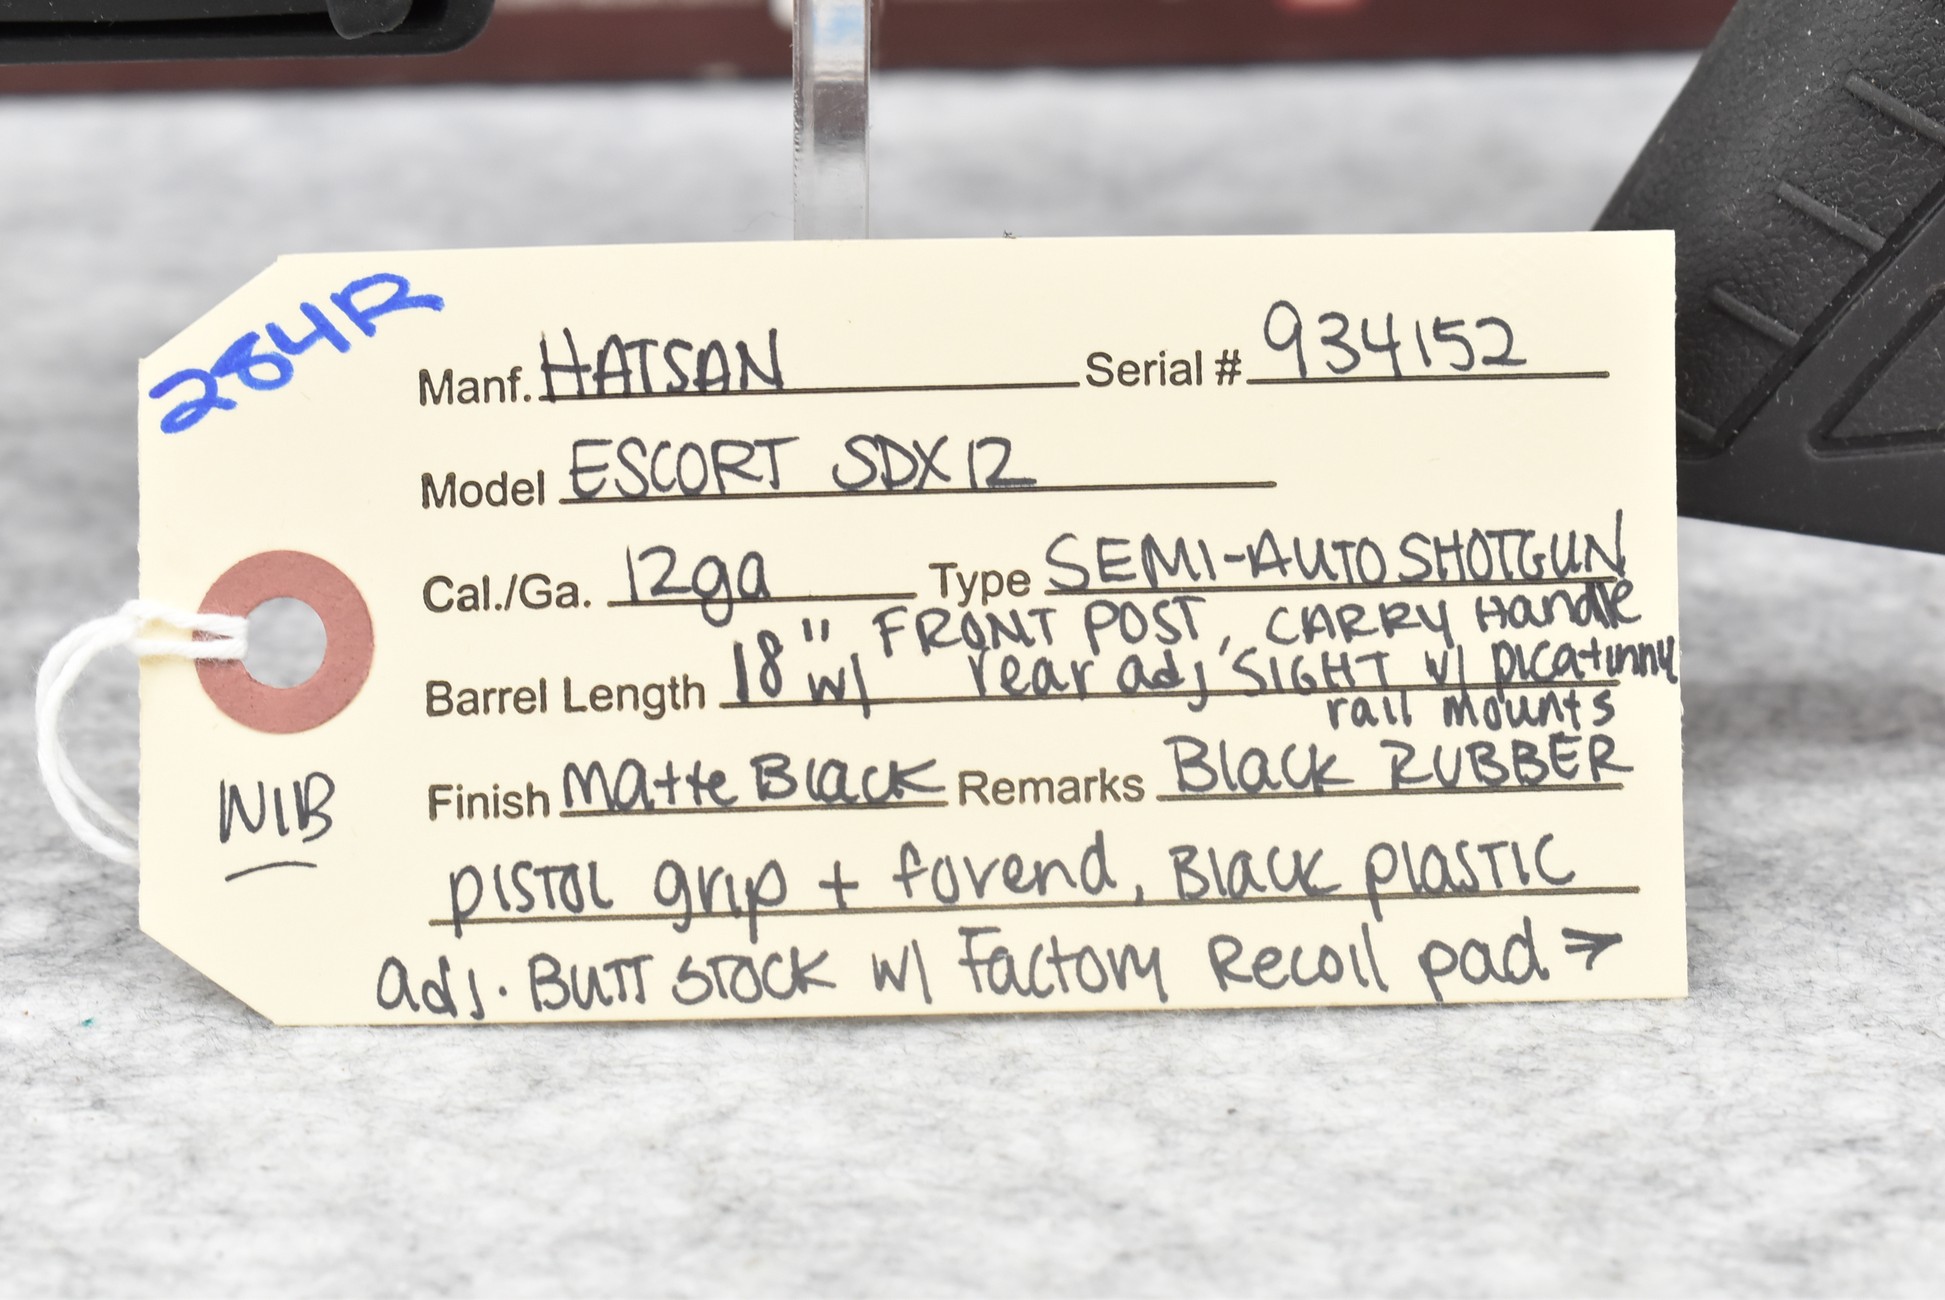 284R
Manf. HATSAN Serial # 934152
Model ESCORT SDX12
Cal./Ga. 12ga Type SEMI-AUTO SHOTGUN
Barrel Length 18" w/ FRONT POST, CARRY Handle
rear adj SIGHT w/ picatinny
rail mounts
Finish Matte Black Remarks Black RUBBER
NIB
PISTOL grip + forend, Black plastic
adj. BUTT STOCK w/ Factory Recoil pad →